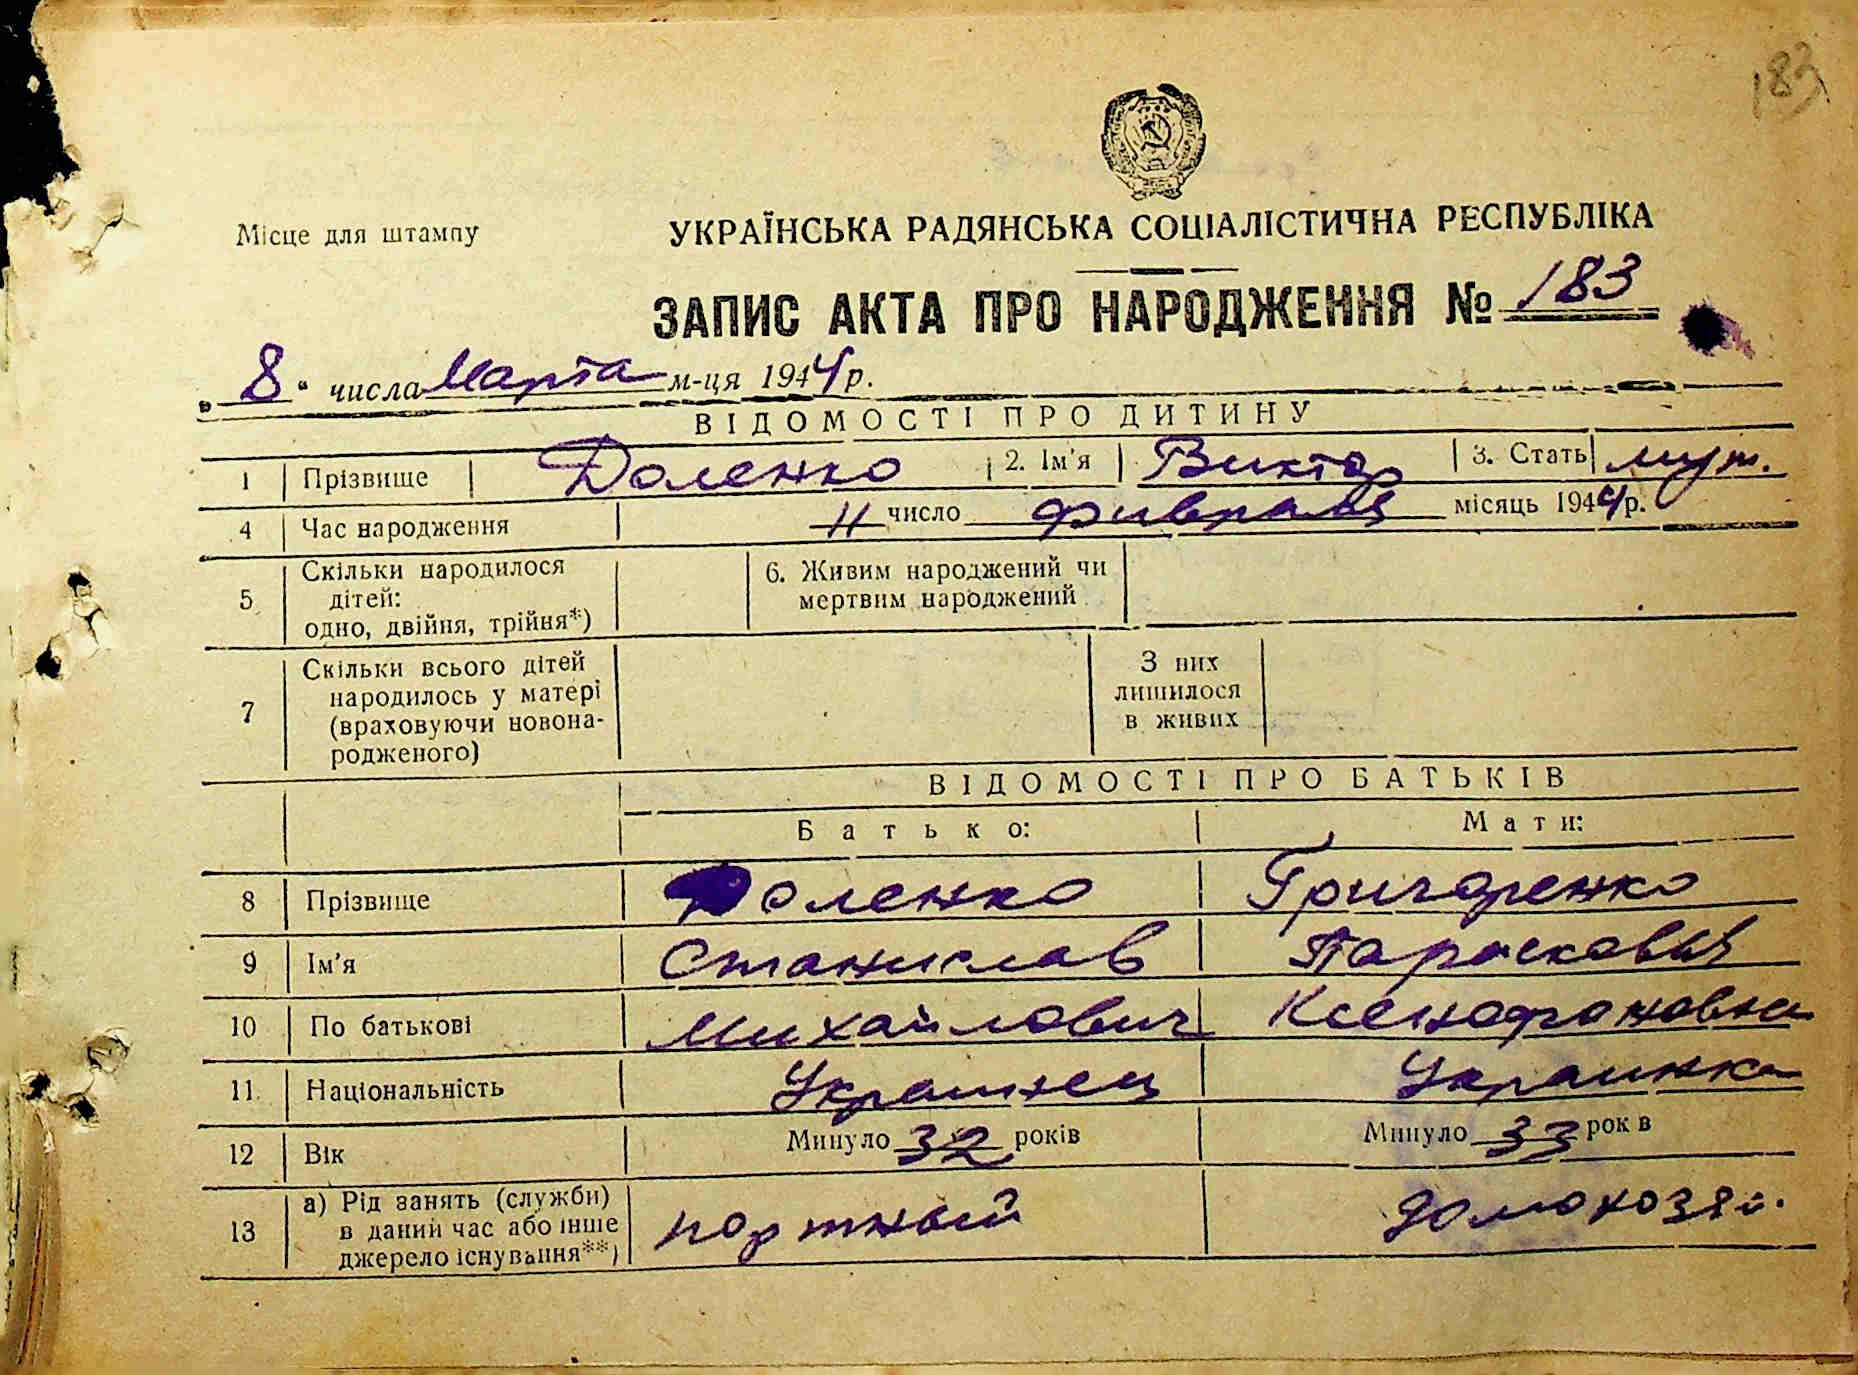 183
Місце для штампу
УКРАЇНСЬКА РАДЯНСЬКА СОЦІАЛІСТИЧНА РЕСПУБЛІКА
ЗАПИС АКТА ПРО НАРОДЖЕННЯ № 183
„ 8 " числа Марта м-ця 1944 р.
ВІДОМОСТІ ПРО ДИТИНУ
1 Прізвище Доленко 2. Ім'я Виктор 3. Стать муж.
4 Час народження 11 число февраля місяць 1944 р.
5 Скільки народилося дітей: одно, двійня, трійня*) 6. Живим народжений чи мертвим народжений
7 Скільки всього дітей народилось у матері (враховуючи новонародженого) З них лишилося в живих
ВІДОМОСТІ ПРО БАТЬКІВ
Батько: Мати:
8 Прізвище Доленко Григоренко
9 Ім'я Станислав
10 По батькові Михайлович Ксенофоновна
11 Національність Украинец Украинка
12 Вік Минуло 32 років Минуло 33 рок в
13 а) Рід занять (служби) в даний час або інше джерело існування**) портный домохозяй.